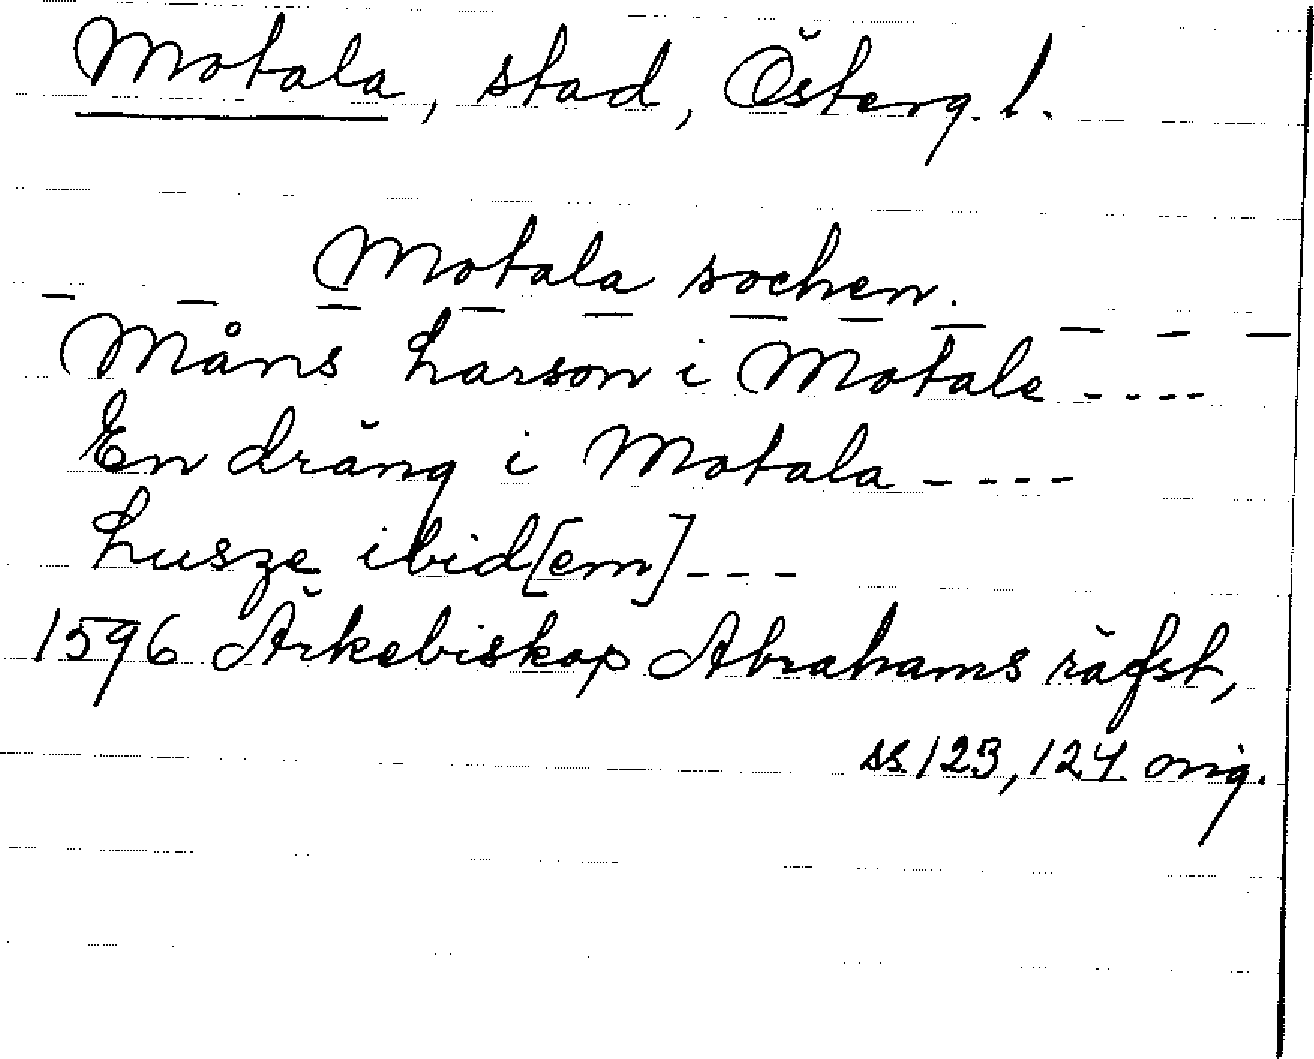 Motala, stad, Österg. l.
Motala sochen.
— — — — — — — — — — —
Måns Larson i Motale ----
En dräng i Motala ----
Lusze ibid[em] ---
1596 Ärkebiskop Abrahams räfst,
ss 123, 124 orig.